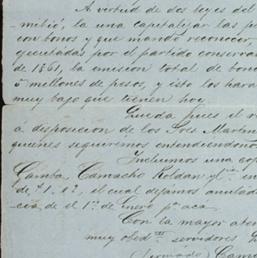 A virtud de dos leyes del
mitió, la una capitalizar las p
con bonos y que mandó reconocer,
ejecutadas por el partido conserva
de 1861, la emision total de bon
5 millones de pesos, y ésto los hará
muy bajo que tienen hoy.
Queda pues el r
á disposicion de los Sres Martin
quienes seguiremos entendiéndono
Incluimos una cop
Gamba, Camacho Roldan y Cia
de el cual dejamos anulad
cia de el 1º de Enero pº acá.
Con la mayor aten
muy obedtes servidores
(firmado) Cama